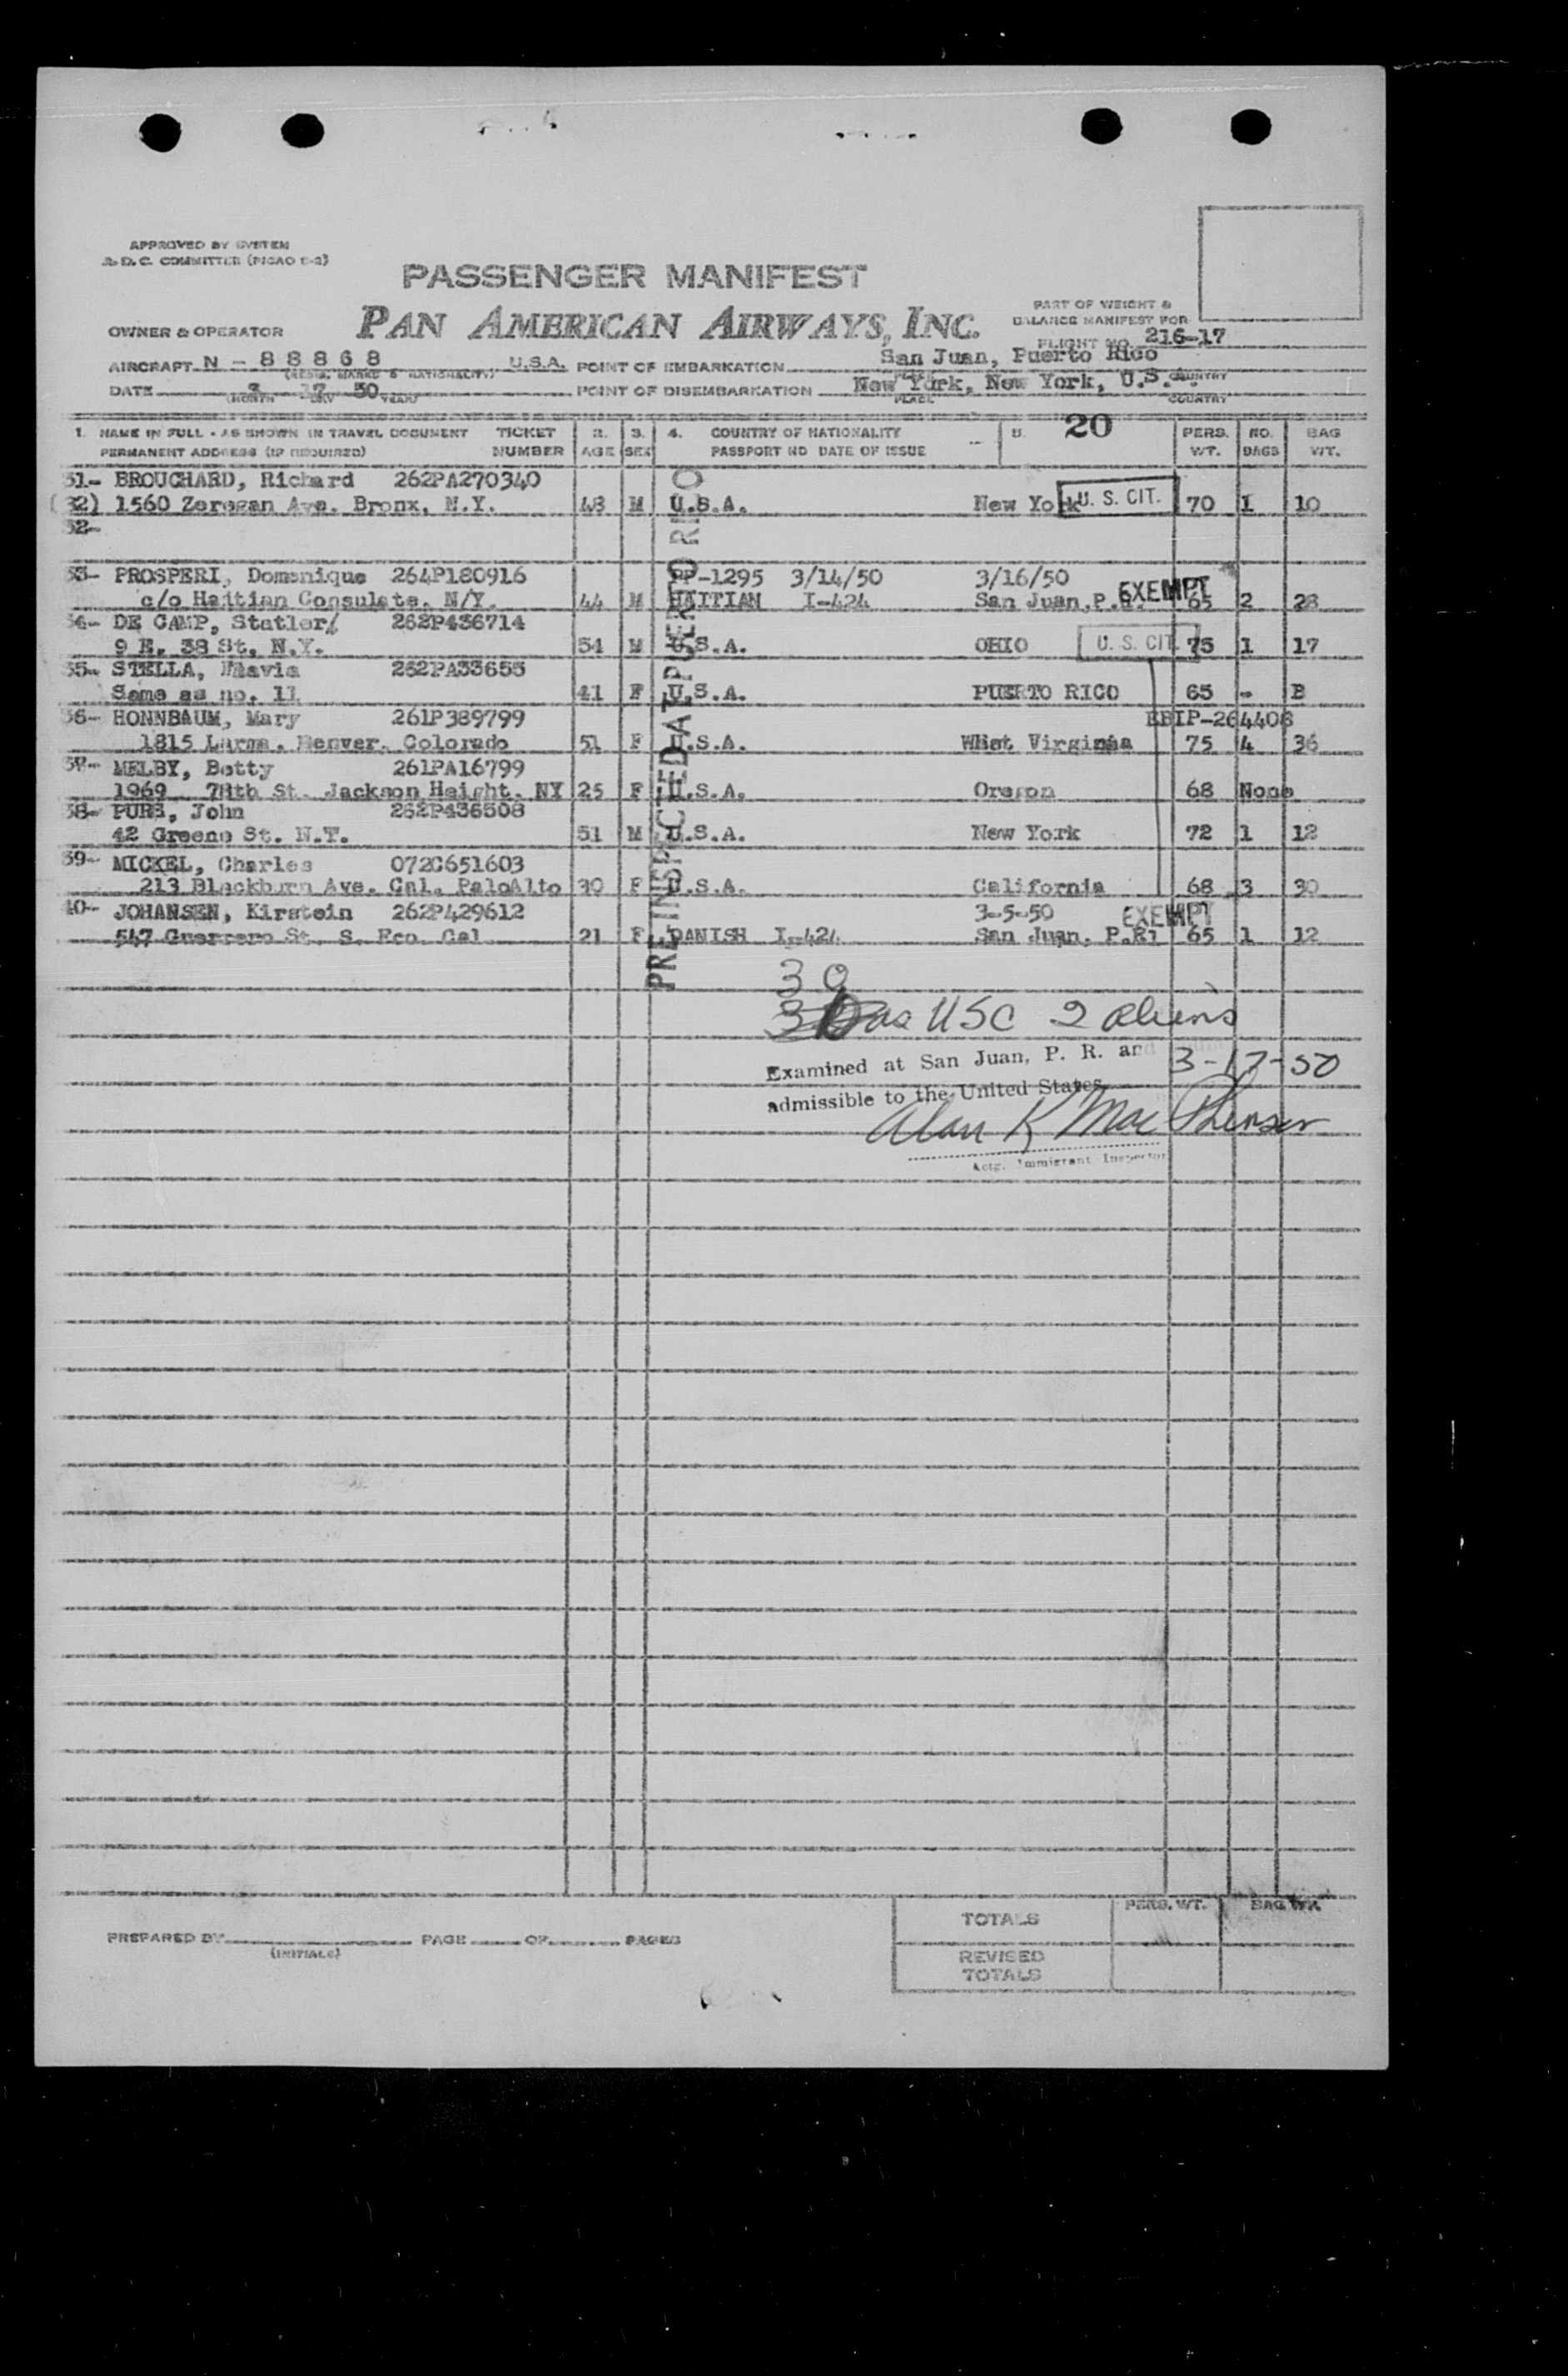 APPROVED BY SYSTEM
& D. C. COMMITTEE (PICAO E-2)
PASSENGER MANIFEST
OWNER & OPERATOR PAN AMERICAN AIRWAYS, INC.
PART OF WEIGHT &
BALANCE MANIFEST FOR
FLIGHT NO. 216-17
AIRCRAFT N - 88868 U.S.A. POINT OF EMBARKATION San Juan, Puerto Rico
(REGS. MARKS & NATIONALITY) PLACE COUNTRY
DATE 3 17 50 POINT OF DISEMBARKATION New York, New York, U.S.
(MONTH DAY YEAR) PLACE COUNTRY
1. NAME IN FULL - AS SHOWN IN TRAVEL DOCUMENT TICKET 2. 3. 4. COUNTRY OF NATIONALITY 5. 20 PERS. NO. BAG
PERMANENT ADDRESS (IF REQUIRED) NUMBER AGE SEX PASSPORT NO DATE OF ISSUE WT. BAGS WT.
PRE-INSPECTED AT PUERTO RICO
31- BROUCHARD, Richard 262PA270340
(32) 1560 Zeregan Ave. Bronx, N.Y. 48 M U.S.A. New York U. S. CIT. 70 1 10
32-
33- PROSPERI, Domenique 264P180916 PP-1295 3/14/50 3/16/50
c/o Haitian Consulate, N/Y. 44 M HAITIAN I-424 San Juan, P.R. EXEMPT 65 2 28
34- DE CAMP, Statler 262P436714
9 E. 38 St. N.Y. 54 M U.S.A. OHIO U. S. CIT 75 1 17
35- STELLA, 262PA33655
Same as no. 11 41 F U.S.A. PUERTO RICO 65 - B
36- HONNBAUM, Mary 261P389799 EBIP-264408
1815 Larma. Denver, Colorado 51 F U.S.A. West Virginia 75 4 36
37- MELBY, Betty 261PA16799
1969 78th St. Jackson Height, NY 25 F U.S.A. Oregon 68 None
38- PURS, John 262P436508
42 Greene St. N.Y. 51 M U.S.A. New York 72 1 12
39- MICKEL, Charles 072C651603
213 Blackburn Ave. Cal. PaloAlto 30 F U.S.A. California 68 3 30
40- JOHANSEN, Kirstein 262P429612 3-5-50 EXEMPT
547 Guerrero St. S. Fco. Cal 21 F DANISH I-424 San Juan, P.R. 65 1 12
30
as USC 2 aliens
Examined at San Juan, P. R. and 3-17-50
admissible to the United States
Alan K MacPherson
Actg. Immigrant Inspector
TOTALS PERS. WT. BAG WT.
PREPARED BY PAGE OF PAGES
(INITIALS)
REVISED
TOTALS